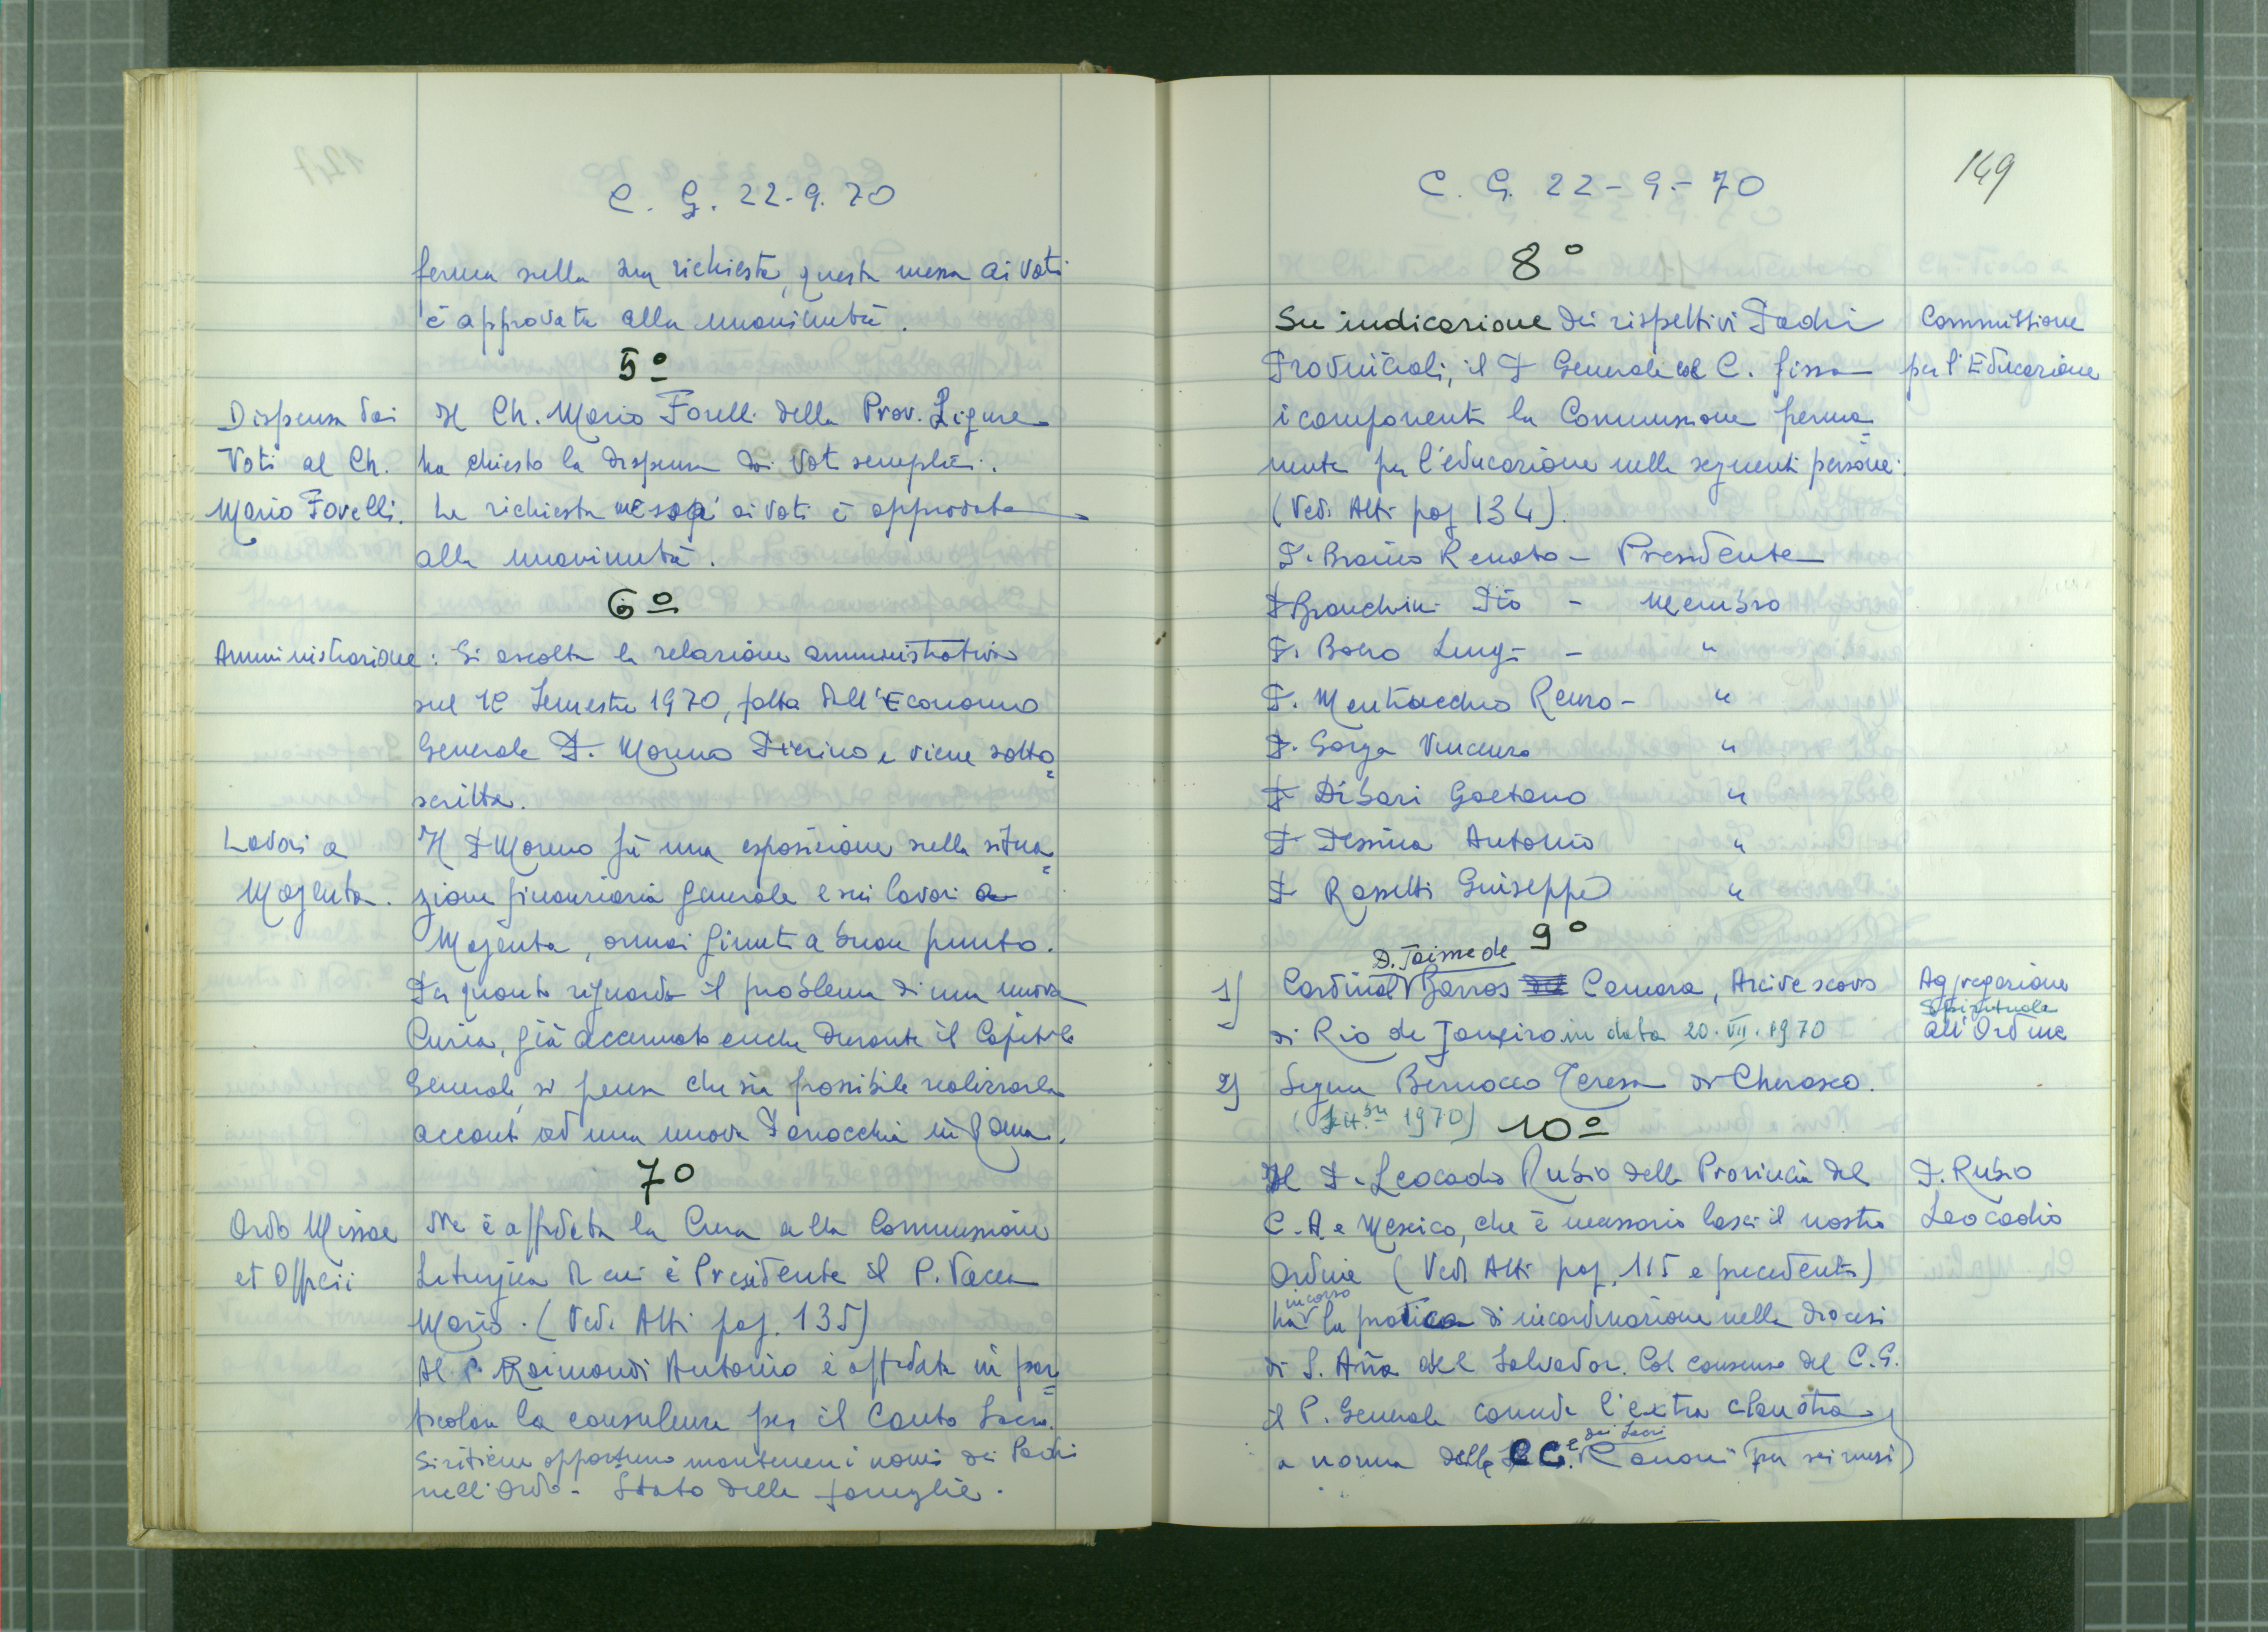 C. G. 22-9-70
ferma nella sua richiesta, questa messa ai voti
è approvata alla unanimità.
5°
Dispensa dai
Voti al Ch.
Mario Forelli.
Il Ch. Mario Forelli della Prov. Ligure
ha chiesto la dispensa dai voti semplici.
La richiesta messa ai voti è approvata
alla unanimità.
6°
Amministrazione: Si ascolta la relazione amministrativa
sul 1° Semestre 1970, fatta dall'Economo
Generale P. Moreno Pierino e viene sotto=
scritta.
Lavori a
Magenta.
Il P Moreno fa una esposizione sulla situa=
zione finanziaria generale e sui lavori a
Magenta, ormai giunti a buon punto.
Per quanto riguarda il problema di una nuova
Curia, già accennato anche durante il Capitolo
Generale, si pensa che sia possibile realizzarla
accanto ad una nuova Parrocchia in Roma.
7°
Ordo Missae
et Officii
Ne è affidata la Cura alla Commissione
Liturgica di cui è Presidente il P. Vacca
Mario. (Vedi Atti pag. 135)
Al P. Raimondi Antonio è affidata in par=
ticolare la consulenza per il Canto Sacro.
Si ritiene opportuno mantenere i nomi dei Padri
nell'Ordo - Stato delle famiglie.
C. G. 22-9-70
149
8°
Su indicazione dei rispettivi Padri
Provinciali, il P Generale col C. fissa
i componenti la Commissione perma=
nente per l'educazione nelle seguenti persone:
(Vedi Atti pag 134).
Commissione
per l'Educazione
P. Bianco Renato - Presidente
P Bianchini Pio - Membro
P. Boero Luigi - "
P. Mentiacchio Renzo - "
P. Gorga Vincenzo "
P Dibari Gaetano "
P Pessina Antonio "
P Rossetti Giuseppe "
9°
1) Cardinal D. Jaime de Barros Camara, Arcivescovo
di Rio de Janeiro in data 20.VII.1970
Aggregazione
Spirituale
all'Ordine
2) Sig.na Bernocco Teresa di Cherasco.
(Sett.bre 1970)
10°
Il P. Leocadio Rubio della Provincia del
C.A. e Messico, che è necessario lasci il nostro
Ordine (Vedi Atti pag. 115 e precedenti)
ha in corso la pratica di incardinazione nella diocesi
di S. Aña del Salvador. Col consenso del C.G.
il P. Generale concede l'extra claustra
a norma delle CC. e dei Sacri Canoni (per sei mesi)
P. Rubio
Leocadio